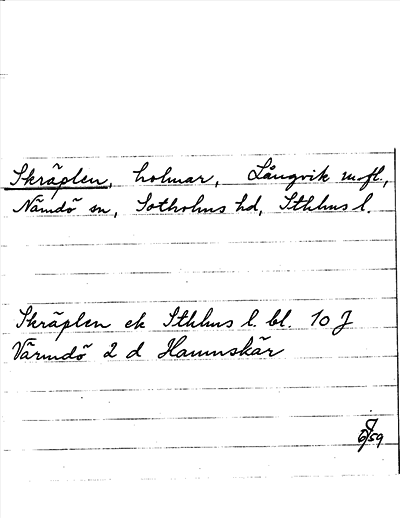 Skräplen, holmar, Långvik m.fl.,
Nämdö sn, Sotholms hd, Sthlms l.
Skräplen ek Sthlms l. bl. 10 J
Värmdö 2 d Hamnskär
59